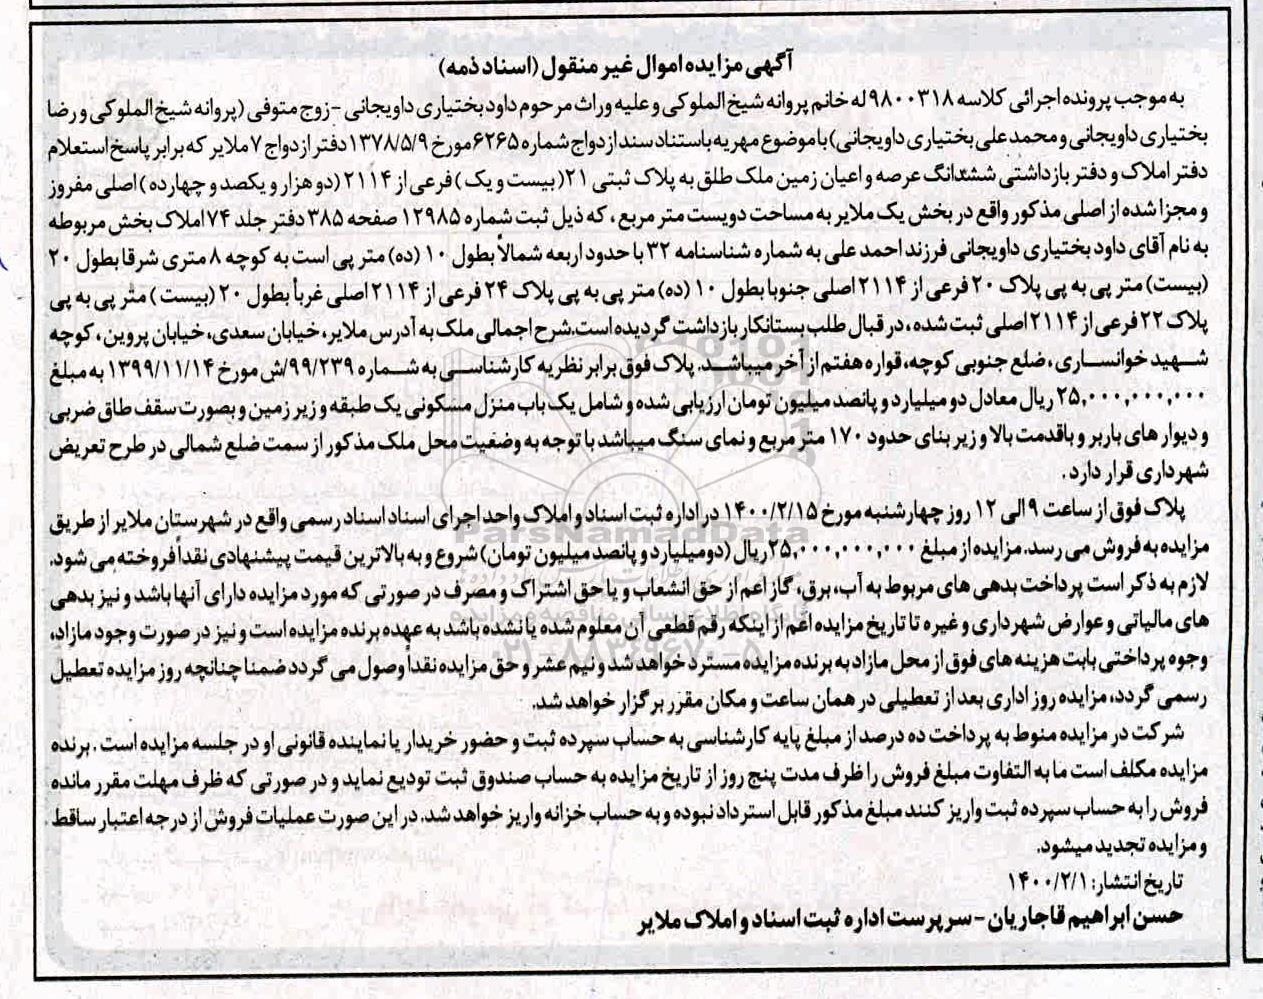 آگهی مزایده اموال غیر منقول (اسناد ذمه)
به موجب پرونده اجرائی کلاسه ۹۸۰۰۳۱۸ له خانم پروانه شیخ الملوکی و علیه وراث مرحوم داود بختیاری داویجانی - زوج متوفی (پروانه شیخ الملوکی و رضا
بختیاری داویجانی و محمد علی بختیاری داویجانی) با موضوع مهریه باستناد سند ازدواج شماره ۶۲۶۵ مورخ ۱۳۷۸/۵/۹ دفتر ازدواج ۷ ملایر که برابر پاسخ استعلام
دفتر املاک و دفتر بازداشتی ششدانگ عرصه و اعیان زمین ملک طلق به پلاک ثبتی ۲۱ (بیست و یک) فرعی از ۲۱۱۴ (دو هزار و یکصد و چهارده) اصلی مفروز
و مجزا شده از اصلی مذکور واقع در بخش یک ملایر به مساحت دویست متر مربع، که ذیل ثبت شماره ۱۲۹۸۵ صفحه ۳۸۵ دفتر جلد ۷۴ املاک بخش مربوطه
به نام آقای داود بختیاری داویجانی فرزند احمد علی به شماره شناسنامه ۳۲ با حدود اربعه شمالاً بطول ۱۰ (ده) متر پی است به کوچه ۸ متری شرقا بطول ۲۰
(بیست) متر پی به پی پلاک ۲۰ فرعی از ۲۱۱۴ اصلی جنوبا بطول ۱۰ (ده) متر پی به پی پلاک ۲۴ فرعی از ۲۱۱۴ اصلی غرباً بطول ۲۰ (بیست) متر پی به پی
پلاک ۲۲ فرعی از ۲۱۱۴ اصلی ثبت شده، در قبال طلب بستانکار بازداشت گردیده است.شرح اجمالی ملک به آدرس ملایر، خیابان سعدی، خیابان پروین، کوچه
شهید خوانساری، ضلع جنوبی کوچه، قواره هفتم از آخر میباشد. پلاک فوق برابر نظریه کارشناسی به شماره ۹۹/۲۳۹/ش مورخ ۱۳۹۹/۱۱/۱۴ به مبلغ
۲۵,۰۰۰,۰۰۰,۰۰۰ ریال معادل دو میلیارد و پانصد میلیون تومان ارزیابی شده و شامل یک باب منزل مسکونی یک طبقه و زیر زمین و بصورت سقف طاق ضربی
و دیوار های باربر و باقدمت بالا و زیر بنای حدود ۱۷۰ متر مربع و نمای سنگ میباشد با توجه به وضعیت محل ملک مذکور از سمت ضلع شمالی در طرح تعریض
شهرداری قرار دارد.
پلاک فوق از ساعت ۹ الی ۱۲ روز چهارشنبه مورخ ۱۴۰۰/۲/۱۵ در اداره ثبت اسناد و املاک واحد اجرای اسناد اسناد رسمی واقع در شهرستان ملایر از طریق
مزایده به فروش می رسد. مزایده از مبلغ ۲۵,۰۰۰,۰۰۰,۰۰۰ ریال (دومیلیارد و پانصد میلیون تومان) شروع و به بالاترین قیمت پیشنهادی نقداً فروخته می شود.
لازم به ذکر است پرداخت بدهی های مربوط به آب، برق، گاز اعم از حق انشعاب و یا حق اشتراک و مصرف در صورتی که مورد مزایده دارای آنها باشد و نیز بدهی
های مالیاتی و عوارض شهرداری و غیره تا تاریخ مزایده اعم از اینکه رقم قطعی آن معلوم شده یا نشده باشد به عهده برنده مزایده است و نیز در صورت وجود مازاد،
وجوه پرداختی بابت هزینه های فوق از محل مازاد به برنده مزایده مسترد خواهد شد و نیم عشر و حق مزایده نقداً وصول می گردد ضمنا چنانچه روز مزایده تعطیل
رسمی گردد، مزایده روز اداری بعد از تعطیلی در همان ساعت و مکان مقرر برگزار خواهد شد.
شرکت در مزایده منوط به پرداخت ده درصد از مبلغ پایه کارشناسی به حساب سپرده ثبت و حضور خریدار یا نماینده قانونی او در جلسه مزایده است. برنده
مزایده مکلف است ما به التفاوت مبلغ فروش را ظرف مدت پنج روز از تاریخ مزایده به حساب صندوق ثبت تودیع نماید و در صورتی که ظرف مهلت مقرر مانده
فروش را به حساب سپرده ثبت واریز کنند مبلغ مذکور قابل استرداد نبوده و به حساب خزانه واریز خواهد شد. در این صورت عملیات فروش از درجه اعتبار ساقط
و مزایده تجدید میشود.
تاریخ انتشار: ۱۴۰۰/۲/۱
حسن ابراهیم قاجاریان - سرپرست اداره ثبت اسناد و املاک ملایر
ParsNamadData
پایگاه اطلاع رسانی مناقصه و مزایده
۰۲۱-۸۸۳۴۹۶۷۰-۵